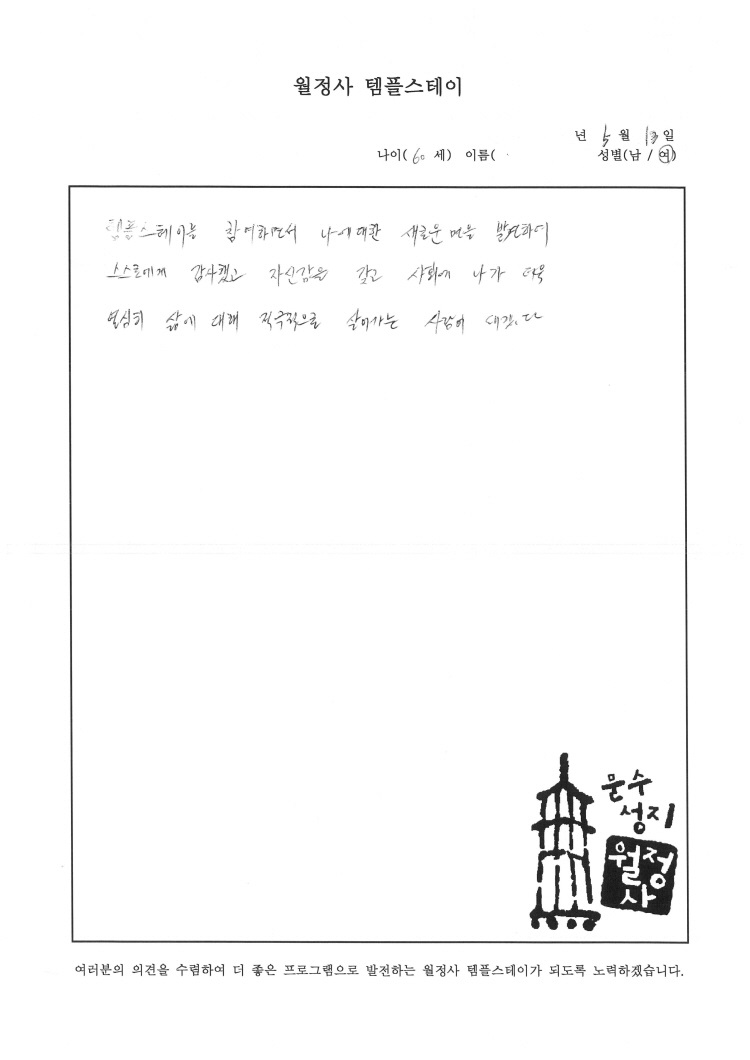 월정사 템플스테이
년 5월 13일
나이( 60 세) 이름(
성별(남 / 여)
템플스테이를 참여하면서 나에 대한 새로운 면을 발견하여
스스로에게 감사했고 자신감을 갖고 사회에 나가 더욱
열심히 삶에 대해 적극적으로 살아가는 사람이 되겠다
문수
성지
월정
사
여러분의 의견을 수렴하여 더 좋은 프로그램으로 발전하는 월정사 템플스테이가 되도록 노력하겠습니다.